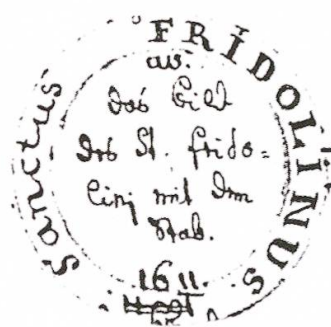 Sanctus FRIDOLINUS
av:
das bild
des St. frido=
linj mit dem
Stab.
1611.